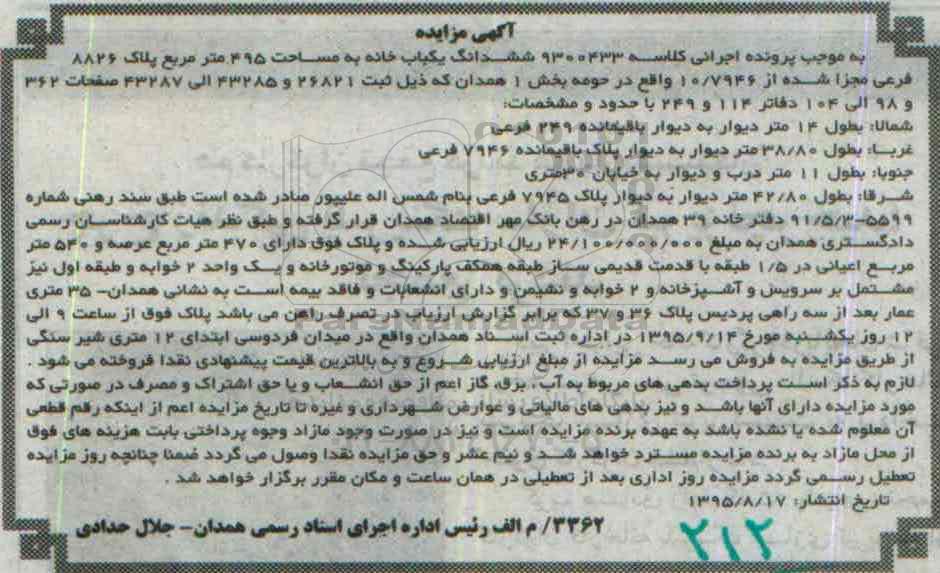 آگهی مزایده
به موجب پرونده اجرائی کلاسه ۹۳۰۰۴۳۳ ششدانگ یکباب خانه به مساحت ۴۹۵ متر مربع پلاک ۸۸۲۶
فرعی مجزا شده از ۱۰/۷۹۴۶ واقع در حومه بخش ۱ همدان که ذیل ثبت ۲۶۸۲۱ و ۴۳۲۸۵ الی ۴۳۲۸۷ صفحات ۳۶۲
و ۹۸ الی ۱۰۴ دفاتر ۱۱۴ و ۲۴۹ با حدود و مشخصات:
شمالا: بطول ۱۴ متر دیوار به دیوار باقیمانده ۲۴۹ فرعی
غربا: بطول ۳۸/۸۰ متر دیوار به دیوار پلاک باقیمانده ۷۹۴۶ فرعی
جنوبا: بطول ۱۱ متر درب و دیوار به خیابان ۳۰متری
شرقا: بطول ۴۲/۸۰ متر دیوار به دیوار پلاک ۷۹۴۵ فرعی بنام شمس اله علیپور صادر شده است طبق سند رهنی شماره
۵۵۹۹-۹۱/۵/۳ دفتر خانه ۳۹ همدان در رهن بانک مهر اقتصاد همدان قرار گرفته و طبق نظر هیات کارشناسان رسمی
دادگستری همدان به مبلغ ۲۴/۱۰۰/۰۰۰/۰۰۰ ریال ارزیابی شده و پلاک فوق دارای ۴۷۰ متر مربع عرصه و ۵۴۰ متر
مربع اعیانی در ۱/۵ طبقه با قدمت قدیمی ساز طبقه همکف پارکینگ و موتورخانه و یک واحد ۲ خوابه و طبقه اول نیز
مشتمل بر سرویس و آشپزخانه و ۲ خوابه و نشیمن و دارای انشعابات و فاقد بیمه است به نشانی همدان- ۳۵ متری
عمار بعد از سه راهی پردیس پلاک ۳۶ و ۳۷ که برابر گزارش ارزیاب در تصرف راهن می باشد پلاک فوق از ساعت ۹ الی
۱۲ روز یکشنبه مورخ ۱۳۹۵/۹/۱۴ در اداره ثبت اسناد همدان واقع در میدان فردوسی ابتدای ۱۲ متری شیر سنگی
از طریق مزایده به فروش می رسد مزایده از مبلغ ارزیابی شروع و به بالاترین قیمت پیشنهادی نقدا فروخته می شود .
لازم به ذکر است پرداخت بدهی های مربوط به آب ، برق، گاز اعم از حق انشعاب و یا حق اشتراک و مصرف در صورتی که
مورد مزایده دارای آنها باشد و نیز بدهی های مالیاتی و عوارض شهرداری و غیره تا تاریخ مزایده اعم از اینکه رقم قطعی
آن معلوم شده یا نشده باشد به عهده برنده مزایده است و نیز در صورت وجود مازاد وجوه پرداختی بابت هزینه های فوق
از محل مازاد به برنده مزایده مسترد خواهد شد و نیم عشر و حق مزایده نقدا وصول می گردد ضمنا چنانچه روز مزایده
تعطیل رسمی گردد مزایده روز اداری بعد از تعطیلی در همان ساعت و مکان مقرر برگزار خواهد شد .
تاریخ انتشار: ۱۳۹۵/۸/۱۷
۳۳۶۲/ م الف رئیس اداره اجرای اسناد رسمی همدان- جلال حدادی
۲۱۲